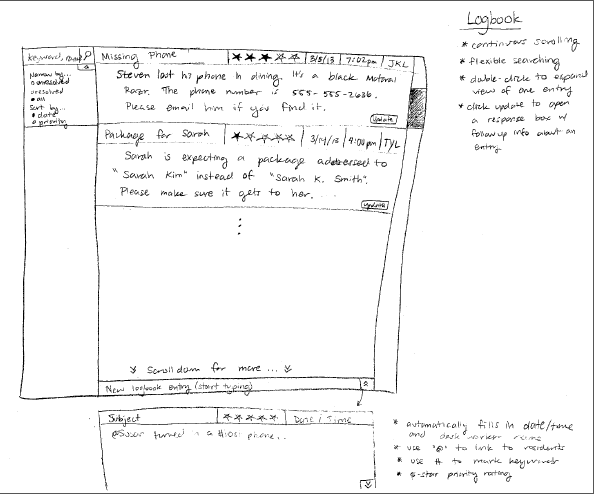 Logbook
* continuous scrolling
* flexible searching
* double-click to expand
view of one entry
* click update to open
a response box w/
follow up info about an
entry
keyword, name
Narrow by...
unresolved
resolved
all
Sort by...
date
priority
Missing Phone 3/5/13 7:02pm JKL
Steven lost his phone in dining. It's a black Motorola
Razor. The phone number is 555-555-2636.
Please email him if you find it.
Update
Package for Sarah 3/14/13 4:00pm TYL
Sarah is expecting a package addressed to
"Sarah Kim" instead of "Sarah K. Smith".
Please make sure it gets to her.
Update
Scroll down for more ...
New logbook entry (start typing)
Subject Date / Time
@Susan turned in a #lost phone...
* automatically fills in date/time
and desk worker name
* use '@' to link to residents
* use # to mark keywords
* 5-star priority rating